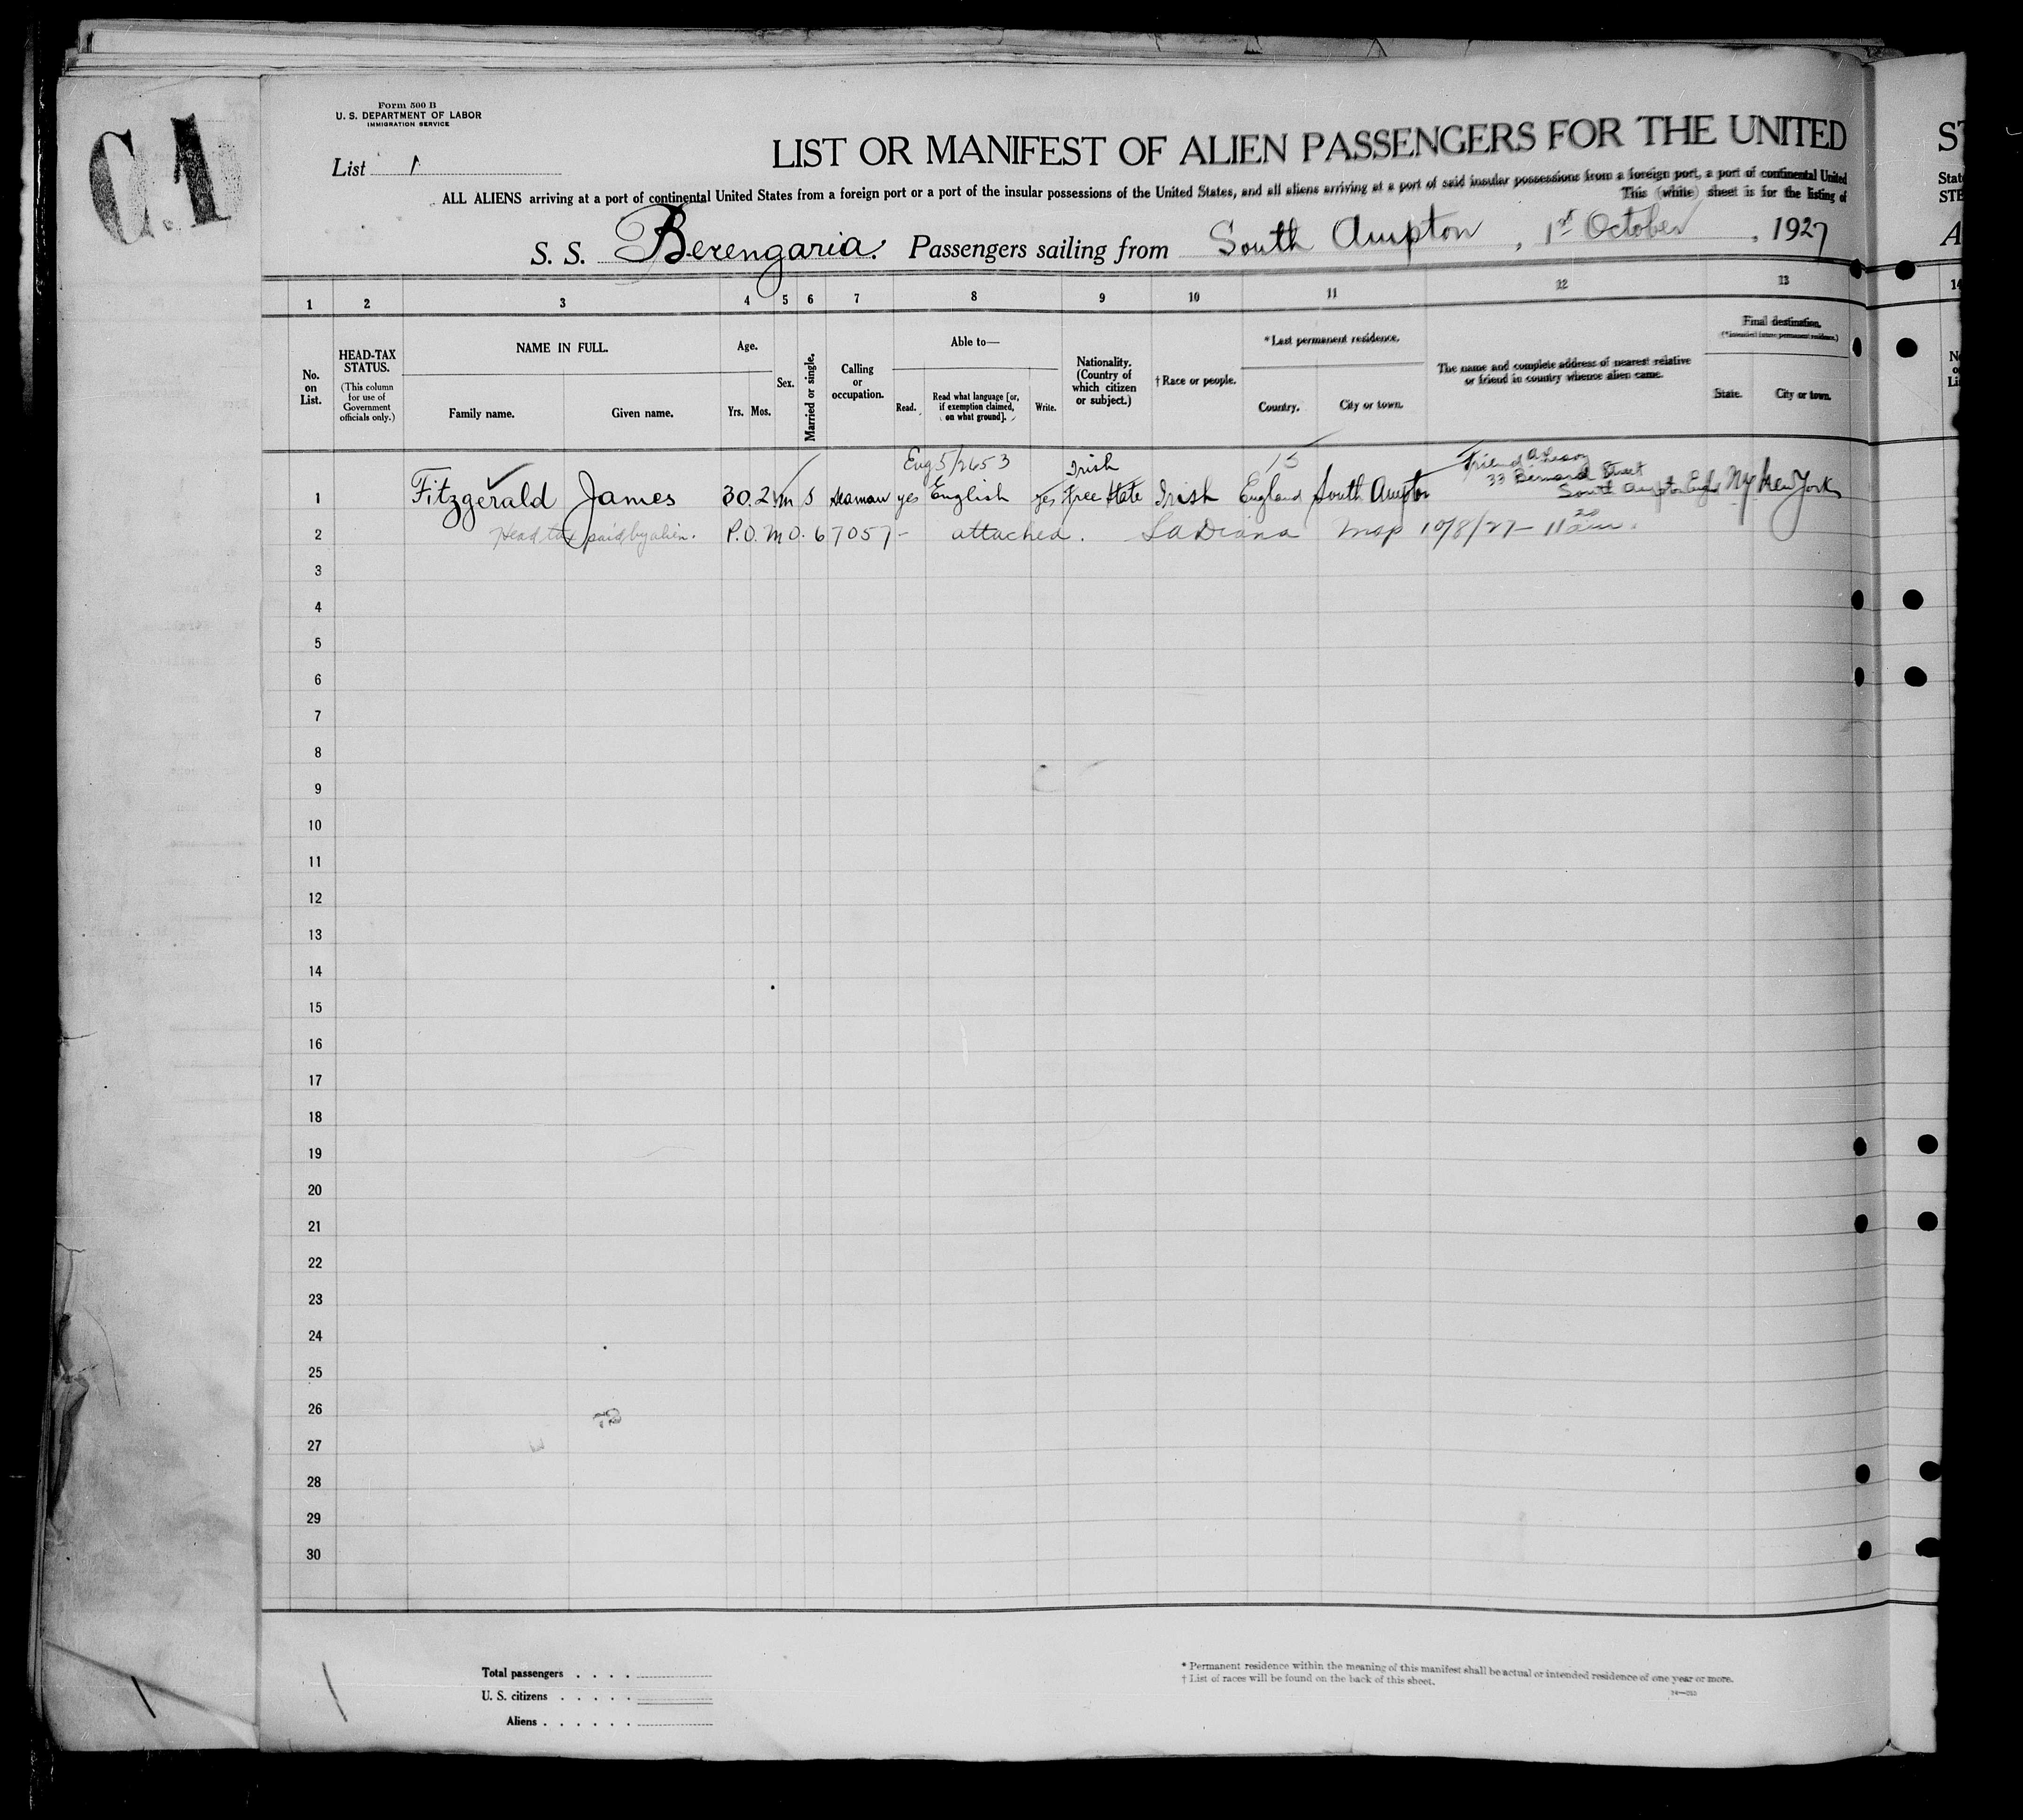 C.1
Form 500 B
U. S. DEPARTMENT OF LABOR
IMMIGRATION SERVICE
List 1
LIST OR MANIFEST OF ALIEN PASSENGERS FOR THE UNITED
ALL ALIENS arriving at a port of continental United States from a foreign port or a port of the insular possessions of the United States, and all aliens arriving at a port of said insular possessions from a foreign port, a port of continental United
This (white) sheet is for the listing of
S. S. Berengaria. Passengers sailing from South Ampton, 1st October, 1927
1 2 3 4 5 6 7 8 9 10 11 12 13
No. on List.
HEAD-TAX STATUS.
(This column for use of Government officials only.)
NAME IN FULL.
Family name. Given name.
Age.
Yrs. Mos.
Sex.
Married or single.
Calling or occupation.
Able to—
Read. Read what language [or, if exemption claimed, on what ground]. Write.
Nationality. (Country of which citizen or subject.)
† Race or people.
* Last permanent residence.
Country. City or town.
The name and complete address of nearest relative or friend in country whence alien came.
Final destination.
(*Intended future permanent residence.)
State. City or town.
Eng 5/2653 Irish 15 Friend
33 Bernard Street
1 Fitzgerald James 30 2 m S Seaman yes English yes Free State Irish England South Ampton South Ampton Eng NY New York
2 Head tax paid by alien. P.O. M O. 67057- attached. 10/8/27- 11 20 am.
3
4
5
6
7
8
9
10
11
12
13
14
15
16
17
18
19
20
21
22
23
24
25
26
27
28
29
30
Total passengers . . . .
U. S. citizens . . . . .
Aliens . . . . . .
* Permanent residence within the meaning of this manifest shall be actual or intended residence of one year or more.
† List of races will be found on the back of this sheet.
ST
State
STE
A
14